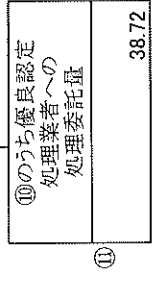 ⑩のうち優良認定
処理業者への
処理委託量
⑪
38.72